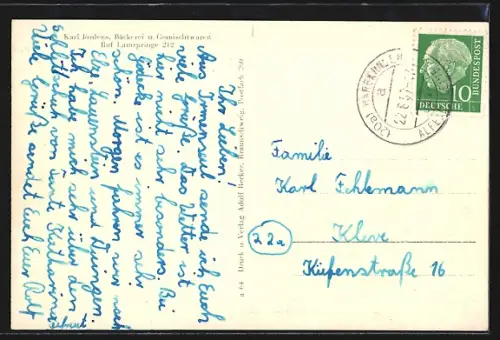 Karl Jördens, Bäckerei u. Gemischtwaren
Ruf Lamspringe 212
Ihr Lieben!
Aus Irmenseul sende ich Euch
viele Grüße. Das Wetter ist
hier nicht sehr besonders. Bei
Jördens ist es immer sehr
schön. Morgen fahren wir nach
Elze, Lauenstein und Duingen.
Ich habe mich sehr über den
von Tante Katharina
gefreut
Viele Grüße sendet Euch Euer Rolf
a 64 Druck u. Verlag Adolf Becker, Braunschweig, Postfach 260
(20a)
a
22.6.57
ALFELD
DEUTSCHE
BUNDESPOST
10
Familie
Karl Fehlemann
22a
Kleve
Küfenstraße 16